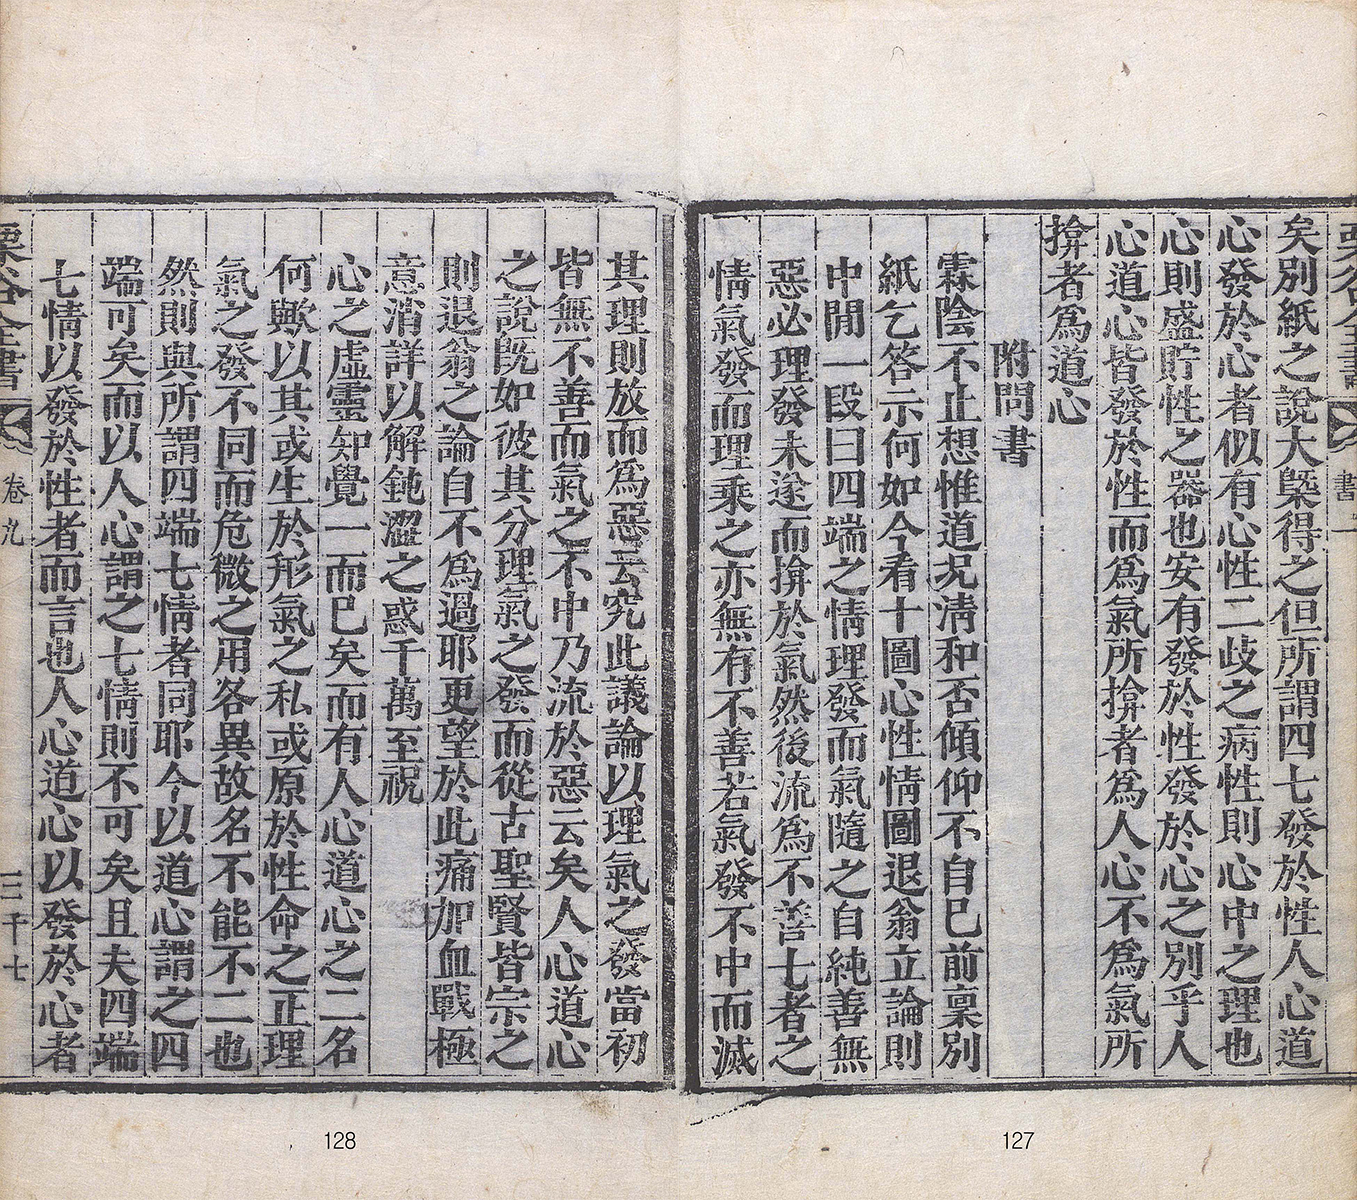 矣別紙之說大槩得之但所謂四七發於性人心道
心發於心者似有心性二歧之病性則心中之理也
心則盛貯性之器也安有發於性發於心之別乎人
心道心皆發於性而爲氣所揜者爲人心不爲氣所
揜者爲道心
附問書
霖陰不止想惟道况淸和否傾仰不自已前稟別
紙乞答示何如今看十圖心性情圖退翁立論則
中間一段曰四端之情理發而氣隨之自純善無
惡必理發未遂而揜於氣然後流爲不善七者之
情氣發而理乘之亦無有不善若氣發不中而滅
其理則放而爲惡云究此議論以理氣之發當初
皆無不善而氣之不中乃流於惡云矣人心道心
之說旣如彼其分理氣之發而從古聖賢皆宗之
則退翁之論自不爲過耶更望於此痛加血戰極
意消詳以解鈍澀之惑千萬至祝
心之虛靈知覺一而已矣而有人心道心之二名
何歟以其或生於形氣之私或原於性命之正理
氣之發不同而危微之用各異故名不能不二也
然則與所謂四端七情者同耶今以道心謂之四
端可矣而以人心謂之七情則不可矣且夫四端
七情以發於性者而言也人心道心以發於心者
栗谷全書 卷九 三十七
書一
128
127